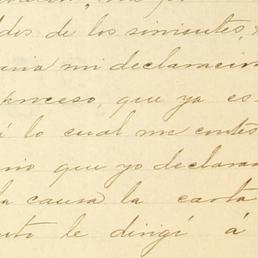 dos de los sirvientes,
mi declaracion
proceso, que ya es
á lo cual me contes
que yo declarara
la causa la carta
le dirigí á